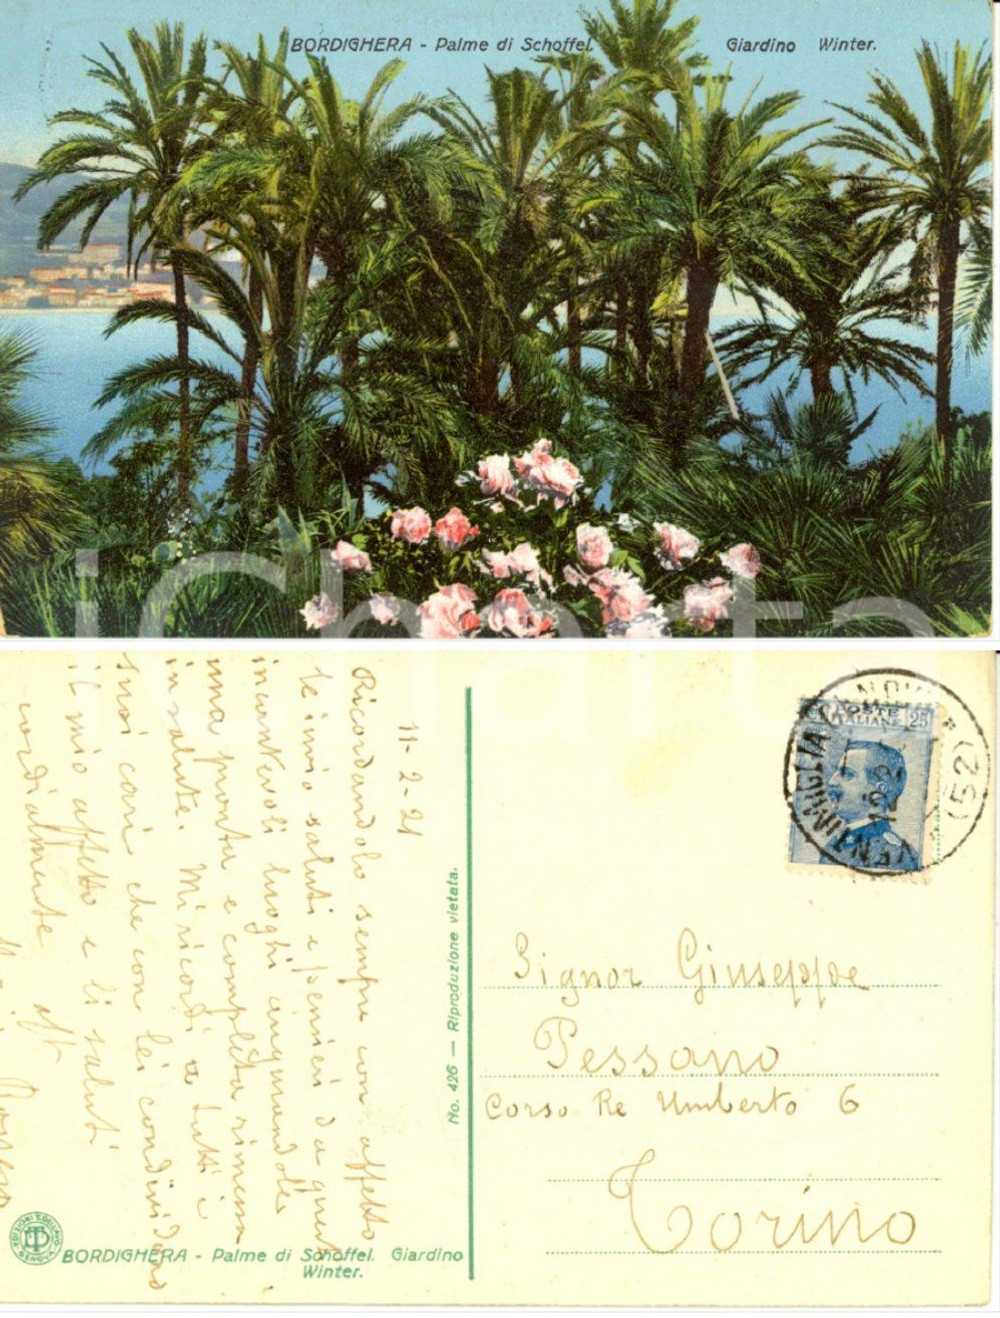 BORDIGHERA - Palme di Schoffel. Giardino Winter.
iCharta
11-2-21
Ricordandolo sempre con affetto
le invio saluti e pensieri da questi
incantevoli luoghi augurandole
una pronta e completa rimessa
in salute. Mi ricordi a tutti i
suoi cari che con lei condividono
il mio affetto e li saluti
cordialmente aff
No. 426 — Riproduzione vietata.
POSTE ITALIANE 25
VENTIMIGLIA
Signor Giuseppe
Pessano
Corso Re Umberto 6
Torino
BORDIGHERA - Palme di Schoffel. Giardino
Winter.